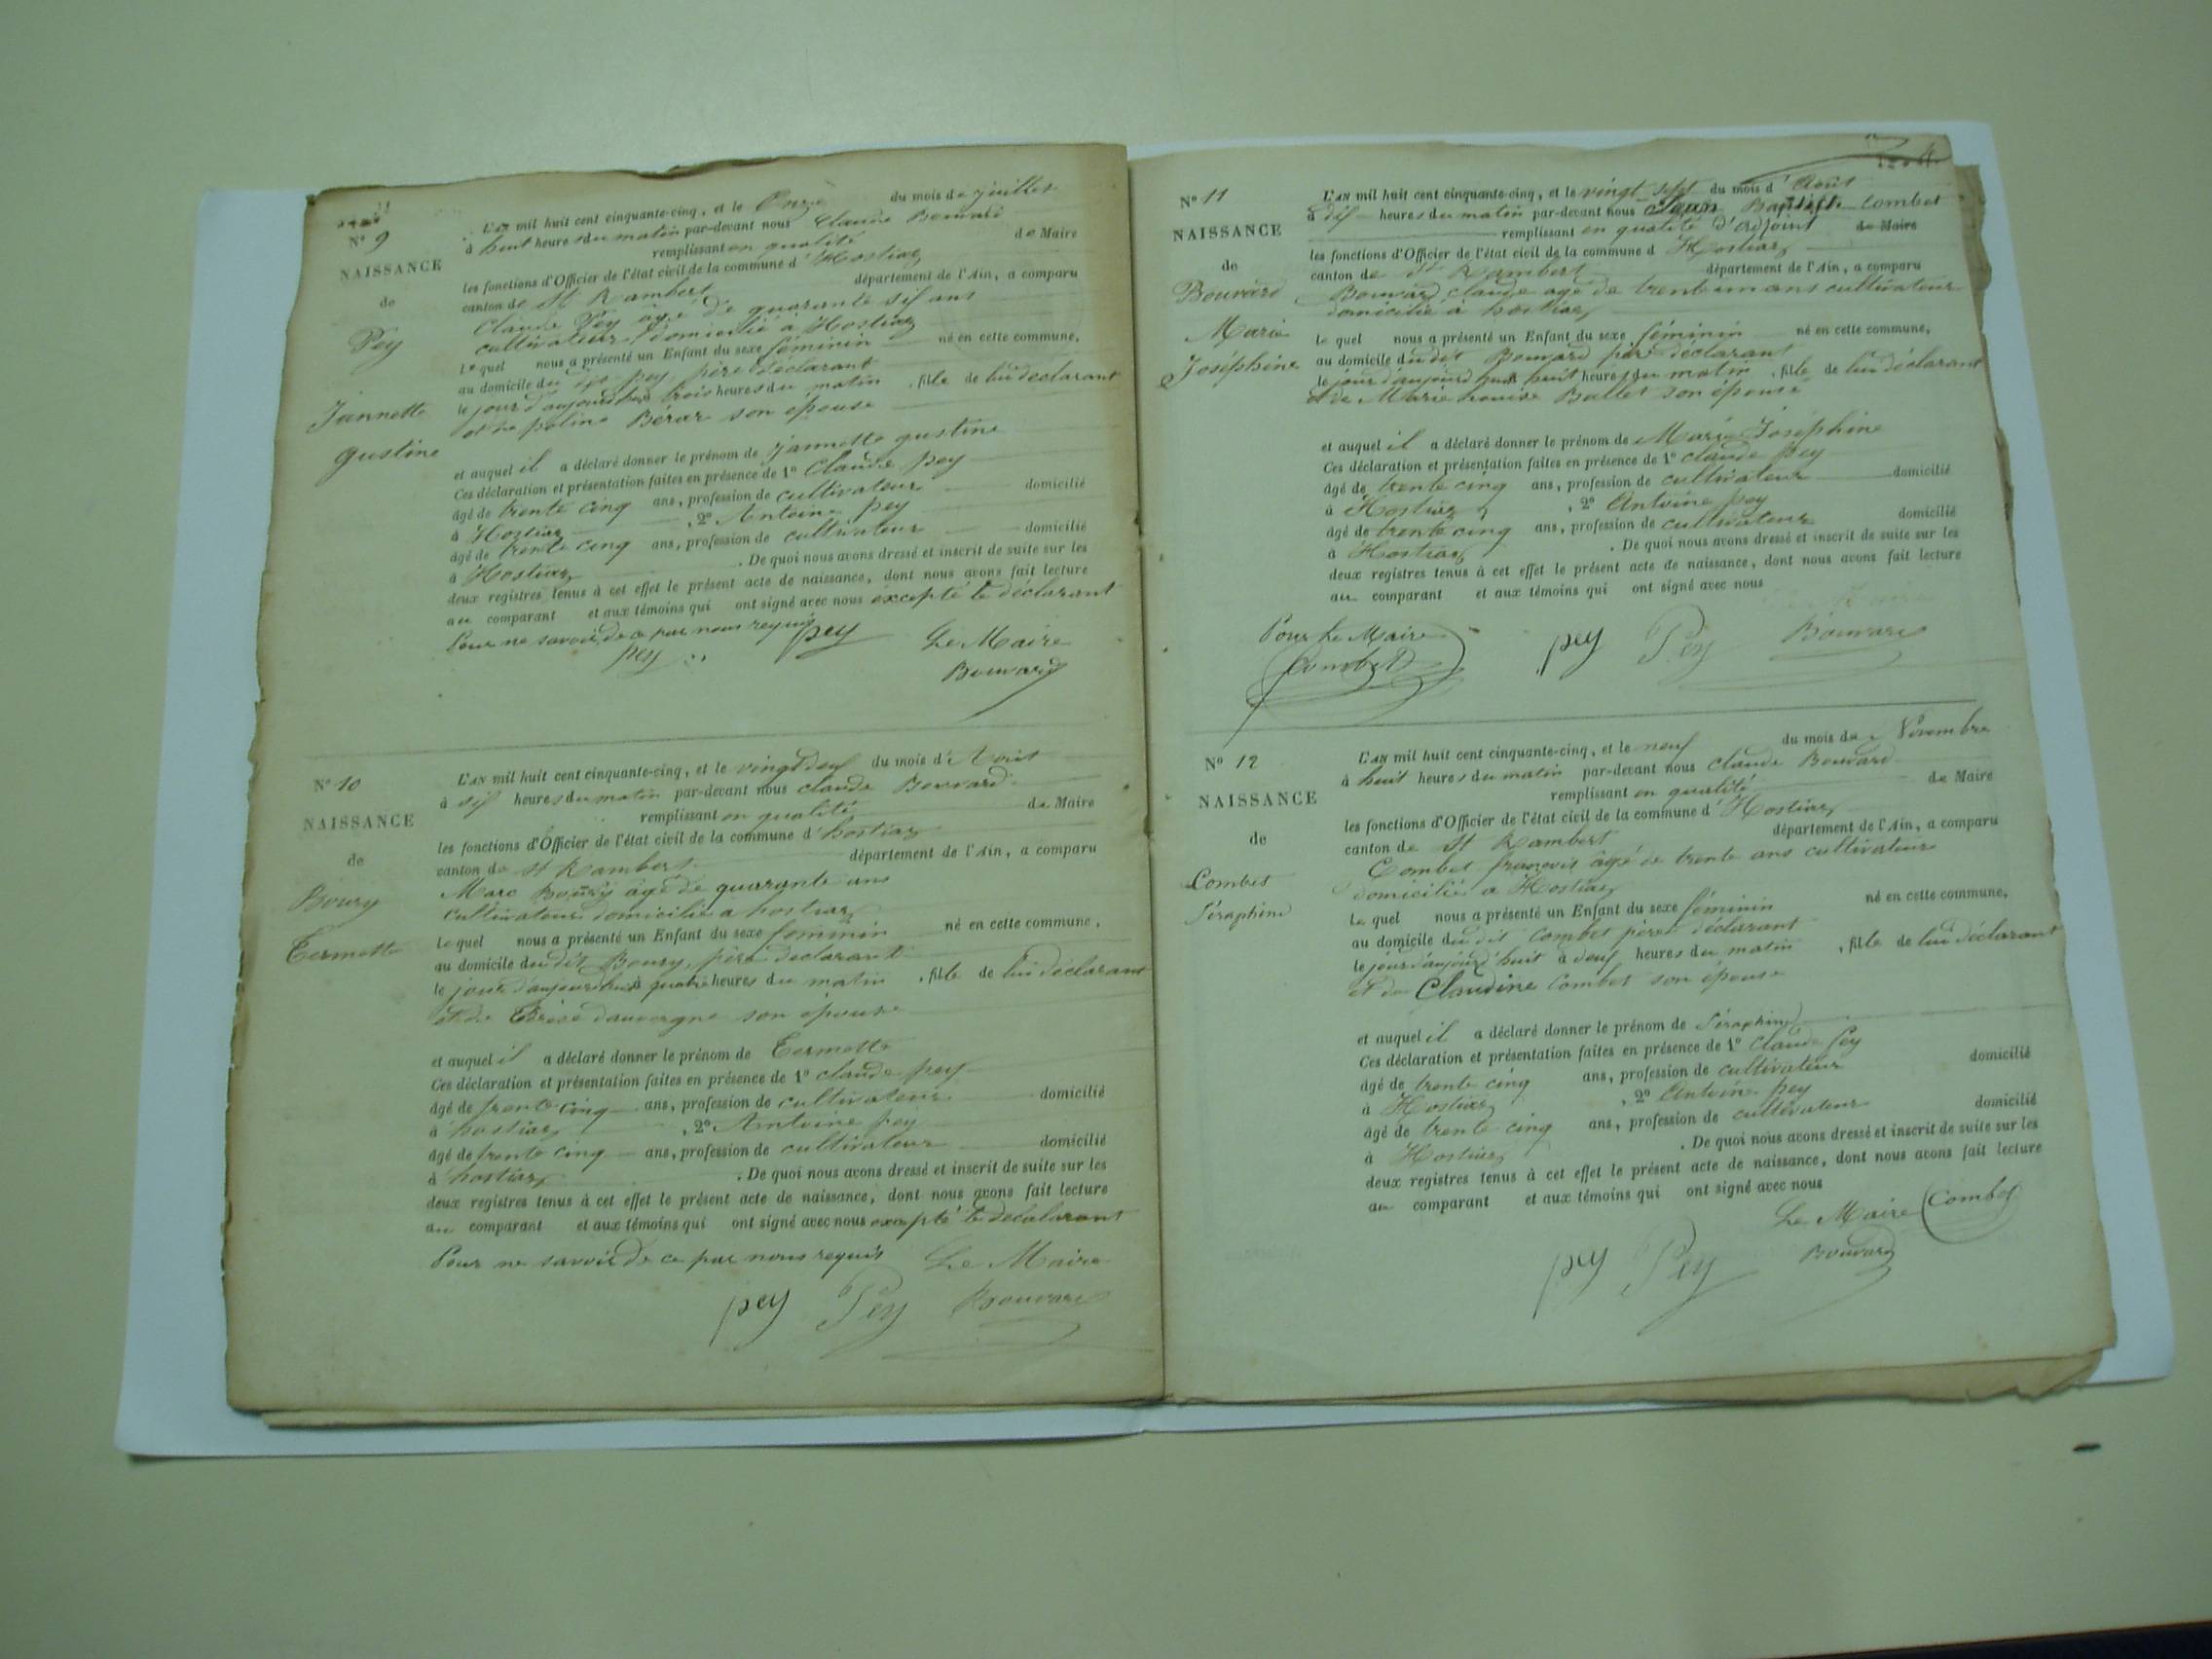 N° 9
NAISSANCE
de
Pey
Jannette
gustine
L'AN mil huit cent cinquante-cinq, et le Onze du mois de juillet
à huit heures du matin par-devant nous Claude Bouvard
remplissant en qualité de Maire
les fonctions d'Officier de l'état civil de la commune d'Hostiaz
canton de St Rambert département de l'Ain, a comparu
Claude Pey agé de quarante sif ans
cultivateur domicilié à Hostiaz
lequel nous a présenté un Enfant du sexe féminin né en cette commune,
au domicile du dit pey père déclarant
le jour d'aujourd'hui à trois heures du matin, fille de lui déclarant
et de poline Bérar son épouse
et auquel il a déclaré donner le prénom de jannette gustine
Ces déclaration et présentation faites en présence de 1° Claude pey
âgé de trente cinq ans, profession de cultivateur domicilié
à Hostiaz, 2° Antoine pey
âgé de trente cinq ans, profession de cultivateur domicilié
à Hostiaz. De quoi nous avons dressé et inscrit de suite sur les
deux registres tenus à cet effet le présent acte de naissance, dont nous avons fait lecture
au comparant et aux témoins qui ont signé avec nous excepté le déclarant
Pour ne savoir de ce par nous requis
pey pey Le Maire
Bouvard
N° 10
NAISSANCE
de
Boury
Termette
L'AN mil huit cent cinquante-cinq, et le vingt deuf du mois d'Aout
à sif heures du matin par-devant nous claude Bouvard
remplissant en qualité de Maire
les fonctions d'Officier de l'état civil de la commune d'hostiaz
canton de St Rambert département de l'Ain, a comparu
Marc Boury âgé de quarante ans
cultivateur domicilié a hostiaz
lequel nous a présenté un Enfant du sexe féminin né en cette commune,
au domicile du dit Boury, père déclarant
le jour d'aujourd'hui à quatre heures du matin, fille de lui déclarant
et de Térèse dauvergne son épouse
et auquel il a déclaré donner le prénom de Termette
Ces déclaration et présentation faites en présence de 1° claude pey
âgé de trente cinq ans, profession de cultivateur domicilié
à hostiaz, 2° Antoine pey
âgé de trente cinq ans, profession de cultivateur domicilié
à hostiaz. De quoi nous avons dressé et inscrit de suite sur les
deux registres tenus à cet effet le présent acte de naissance, dont nous avons fait lecture
au comparant et aux témoins qui ont signé avec nous excepté le decalarant
Pour ne savoir de ce par nous requis Le Maire
pey Pey Bouvard
N° 11
NAISSANCE
de
Bouvard
Marie
Joséphine
L'AN mil huit cent cinquante-cinq, et le vingt sept du mois d'Août
à dif heures du matin par-devant nous Jean Baptiste Combet
remplissant en qualité d'adjoint de Maire
les fonctions d'Officier de l'état civil de la commune d Hostiaz
canton de St Rambert département de l'Ain, a comparu
Bouvard claude agé de trente un ans cultivateur
domicilié à hostiaz
lequel nous a présenté un Enfant du sexe féminin né en cette commune,
au domicile du dit Bouvard père déclarant
le jour d'aujourd'hui à huit heures du matin, fille de lui déclarant
et de Marie Louise Ballet son épouse
et auquel il a déclaré donner le prénom de Marie Joséphine
Ces déclaration et présentation faites en présence de 1° claude pey
âgé de trente cinq ans, profession de cultivateur domicilié
à Hostiaz, 2° Antoine pey
âgé de trente cinq ans, profession de cultivateur domicilié
à Hostiaz. De quoi nous avons dressé et inscrit de suite sur les
deux registres tenus à cet effet le présent acte de naissance, dont nous avons fait lecture
au comparant et aux témoins qui ont signé avec nous
Pour Le Maire
Combet pey Pey Bouvard
N° 12
NAISSANCE
de
Combet
Séraphine
L'AN mil huit cent cinquante-cinq, et le neuf du mois de Novembre
à huit heures du matin par-devant nous claude Bouvard
remplissant en qualité de Maire
les fonctions d'Officier de l'état civil de la commune d'Hostiaz
canton de St Rambert département de l'Ain, a comparu
Combet françois âgé de trente ans cultivateur
domicilié a Hostiaz
lequel nous a présenté un Enfant du sexe féminin né en cette commune,
au domicile du dit Combet père déclarant
le jour d'aujourd'huit à deuf heures du matin, fille de lui déclarant
et de Claudine Combet son épouse
et auquel il a déclaré donner le prénom de Séraphine
Ces déclaration et présentation faites en présence de 1° claude Pey
âgé de trente cinq ans, profession de cultivateur domicilié
à Hostiaz, 2° Antoine pey
âgé de trente cinq ans, profession de cultivateur domicilié
à Hostiaz. De quoi nous avons dressé et inscrit de suite sur les
deux registres tenus à cet effet le présent acte de naissance, dont nous avons fait lecture
au comparant et aux témoins qui ont signé avec nous
Le Maire Combet
pey Pey Bouvard